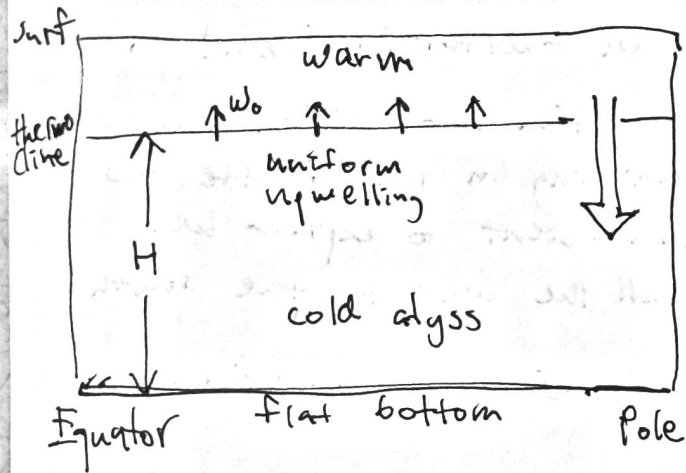 surf
warm
wo
thermo
cline
uniform
upwelling
H
cold abyss
Equator
flat bottom
Pole